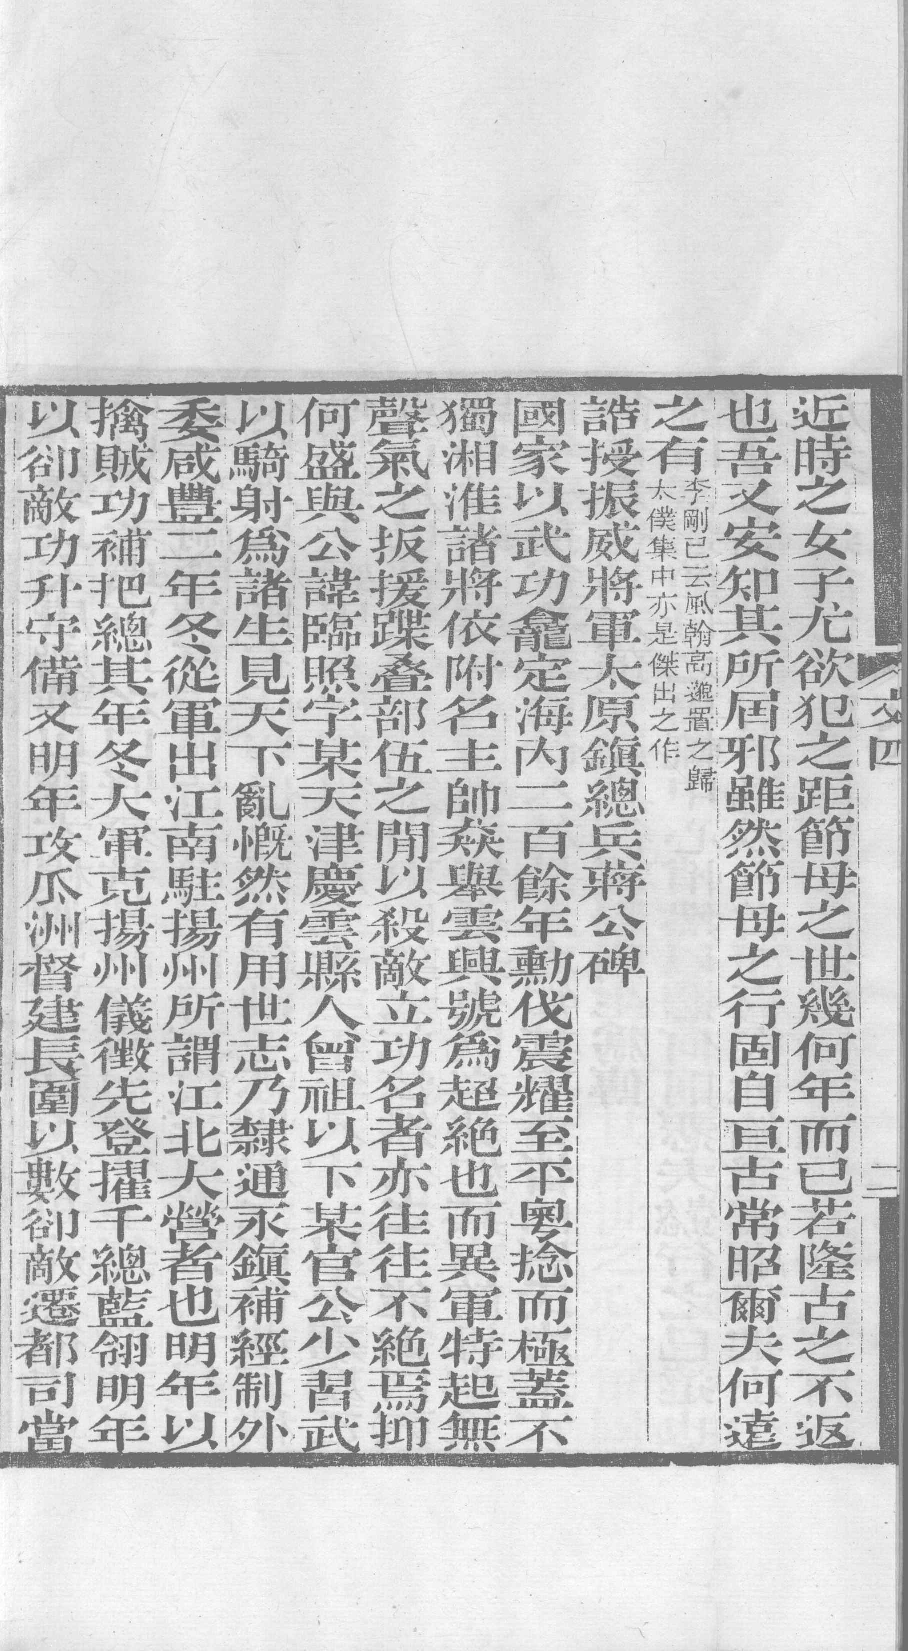 文四
二
近時之女子尤欲犯之距節母之世幾何年而已若隆古之不返
也吾又安知其所屆邪雖然節母之行固自亘古常昭爾夫何遠
之有李剛已云風翰高邁置之歸太僕集中亦是傑出之作
誥授振威將軍太原鎭總兵蔣公碑
國家以武功龕定海內二百餘年勳伐震耀至平粵捻而極蓋不
獨湘淮諸將依附名主帥猋舉雲興號爲超絶也而異軍特起無
聲氣之扳援蹀叠部伍之閒以殺敵立功名者亦往往不絶焉抑
何盛與公諱臨照字某天津慶雲縣人曾祖以下某官公少習武
以騎射爲諸生見天下亂慨然有用世志乃隸通永鎭補經制外
委咸豐二年冬從軍出江南駐揚州所謂江北大營者也明年以
擒賊功補把總其年冬大軍克揚州儀徵先登擢千總藍翎明年
以卻敵功升守備又明年攻瓜洲督建長圍以數卻敵遷都司當